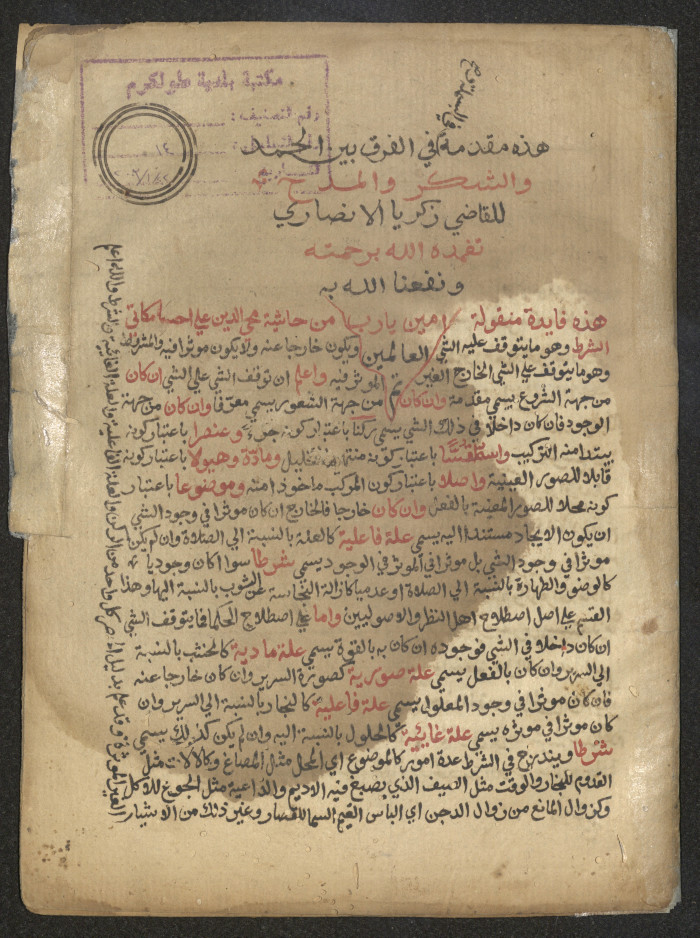 مكتبة بلدية طولكرم
رقم التصنيف :
١٤
هذه مقدمة في الفرق بين الحمد
والشكر والمدح
للقاضي زكريا الانصاري
تغمده الله برحمته
ونفعنا الله به
امين يارب
العالمين
تم
هذه فايدة منقولة من حاشية محي الدين علي احسامكاتي
الشرط وهو ما يتوقف عليه الشي ويكون خارجا عنه ولا يكون موثرا فيه والمشروط
وهو ما يتوقف علي الشي الخارج الغير الموثر فيه واعلم ان توقف الشي علي الشي ان كان
من جهة الشروع يسمي مقدمة وان كان من جهة الشعور يسمي معرفا وان كان من جهة
الوجود فان كان داخلا في ذلك الشي يسمي ركنا باعتبار كونه جزء وعنصرا باعتبار كونه
يبتدا منه التركيب واسطقسا باعتبار كونه ينتهي اليه التحليل ومادة وهيولا باعتبار كونه
قابلا للصور الغير المعينة واصلا باعتبار كون المركب ماخوذ امنه وموضوعا باعتبار
كونه محلا للصور المعينة بالفعل وان كان خارجا فالخارج ان كان موثرا في وجود الشي
ان يكون الايجاد مستندا اليه يسمي علة فاعلية كالعلة بالنسبة الي الصلاة وان لم يكن
موثرا في وجود الشي بل موثرا في الموثر في الوجود يسمي شرطا سوا كان وجوديا
كالوضو والطهارة بالنسبة الي الصلاة او عدميا كازالة النجاسة عن الثوب بالنسبة اليها وهذا
القسم علي اصل اصطلاح اهل النظر والاصوليين واما علي اصطلاح الحكما فما يتوقف الشي
ان كان داخلا في الشي فوجوده ان كان به بالقوة يسمي علة مادية كالخشب بالنسبة
الي السرير وان كان بالفعل يسمي علة صورية كصورة السرير وان كان خارجا عنه
فان كان موثرا في وجود المعلول يسمي علة فاعلية كالنجار بالنسبة الي السرير وان
كان موثرا في موثره يسمي علة غائية كالجلوس بالنسبة اليه وان لم يكن كذلك يسمي
شرطا ويندرج في الشرط عدة امور كالموضوع اي المحل مثل الصباغ وكالالات مثل
القدوم للنجار والوقت مثل الصيف الذي يصبغ فيه الاديم والداعية مثل الجوع للاكل
وكزوال المانع من زوال الدجن اي الباس الغيم السما للقصار وغير ذلك من الاشيا